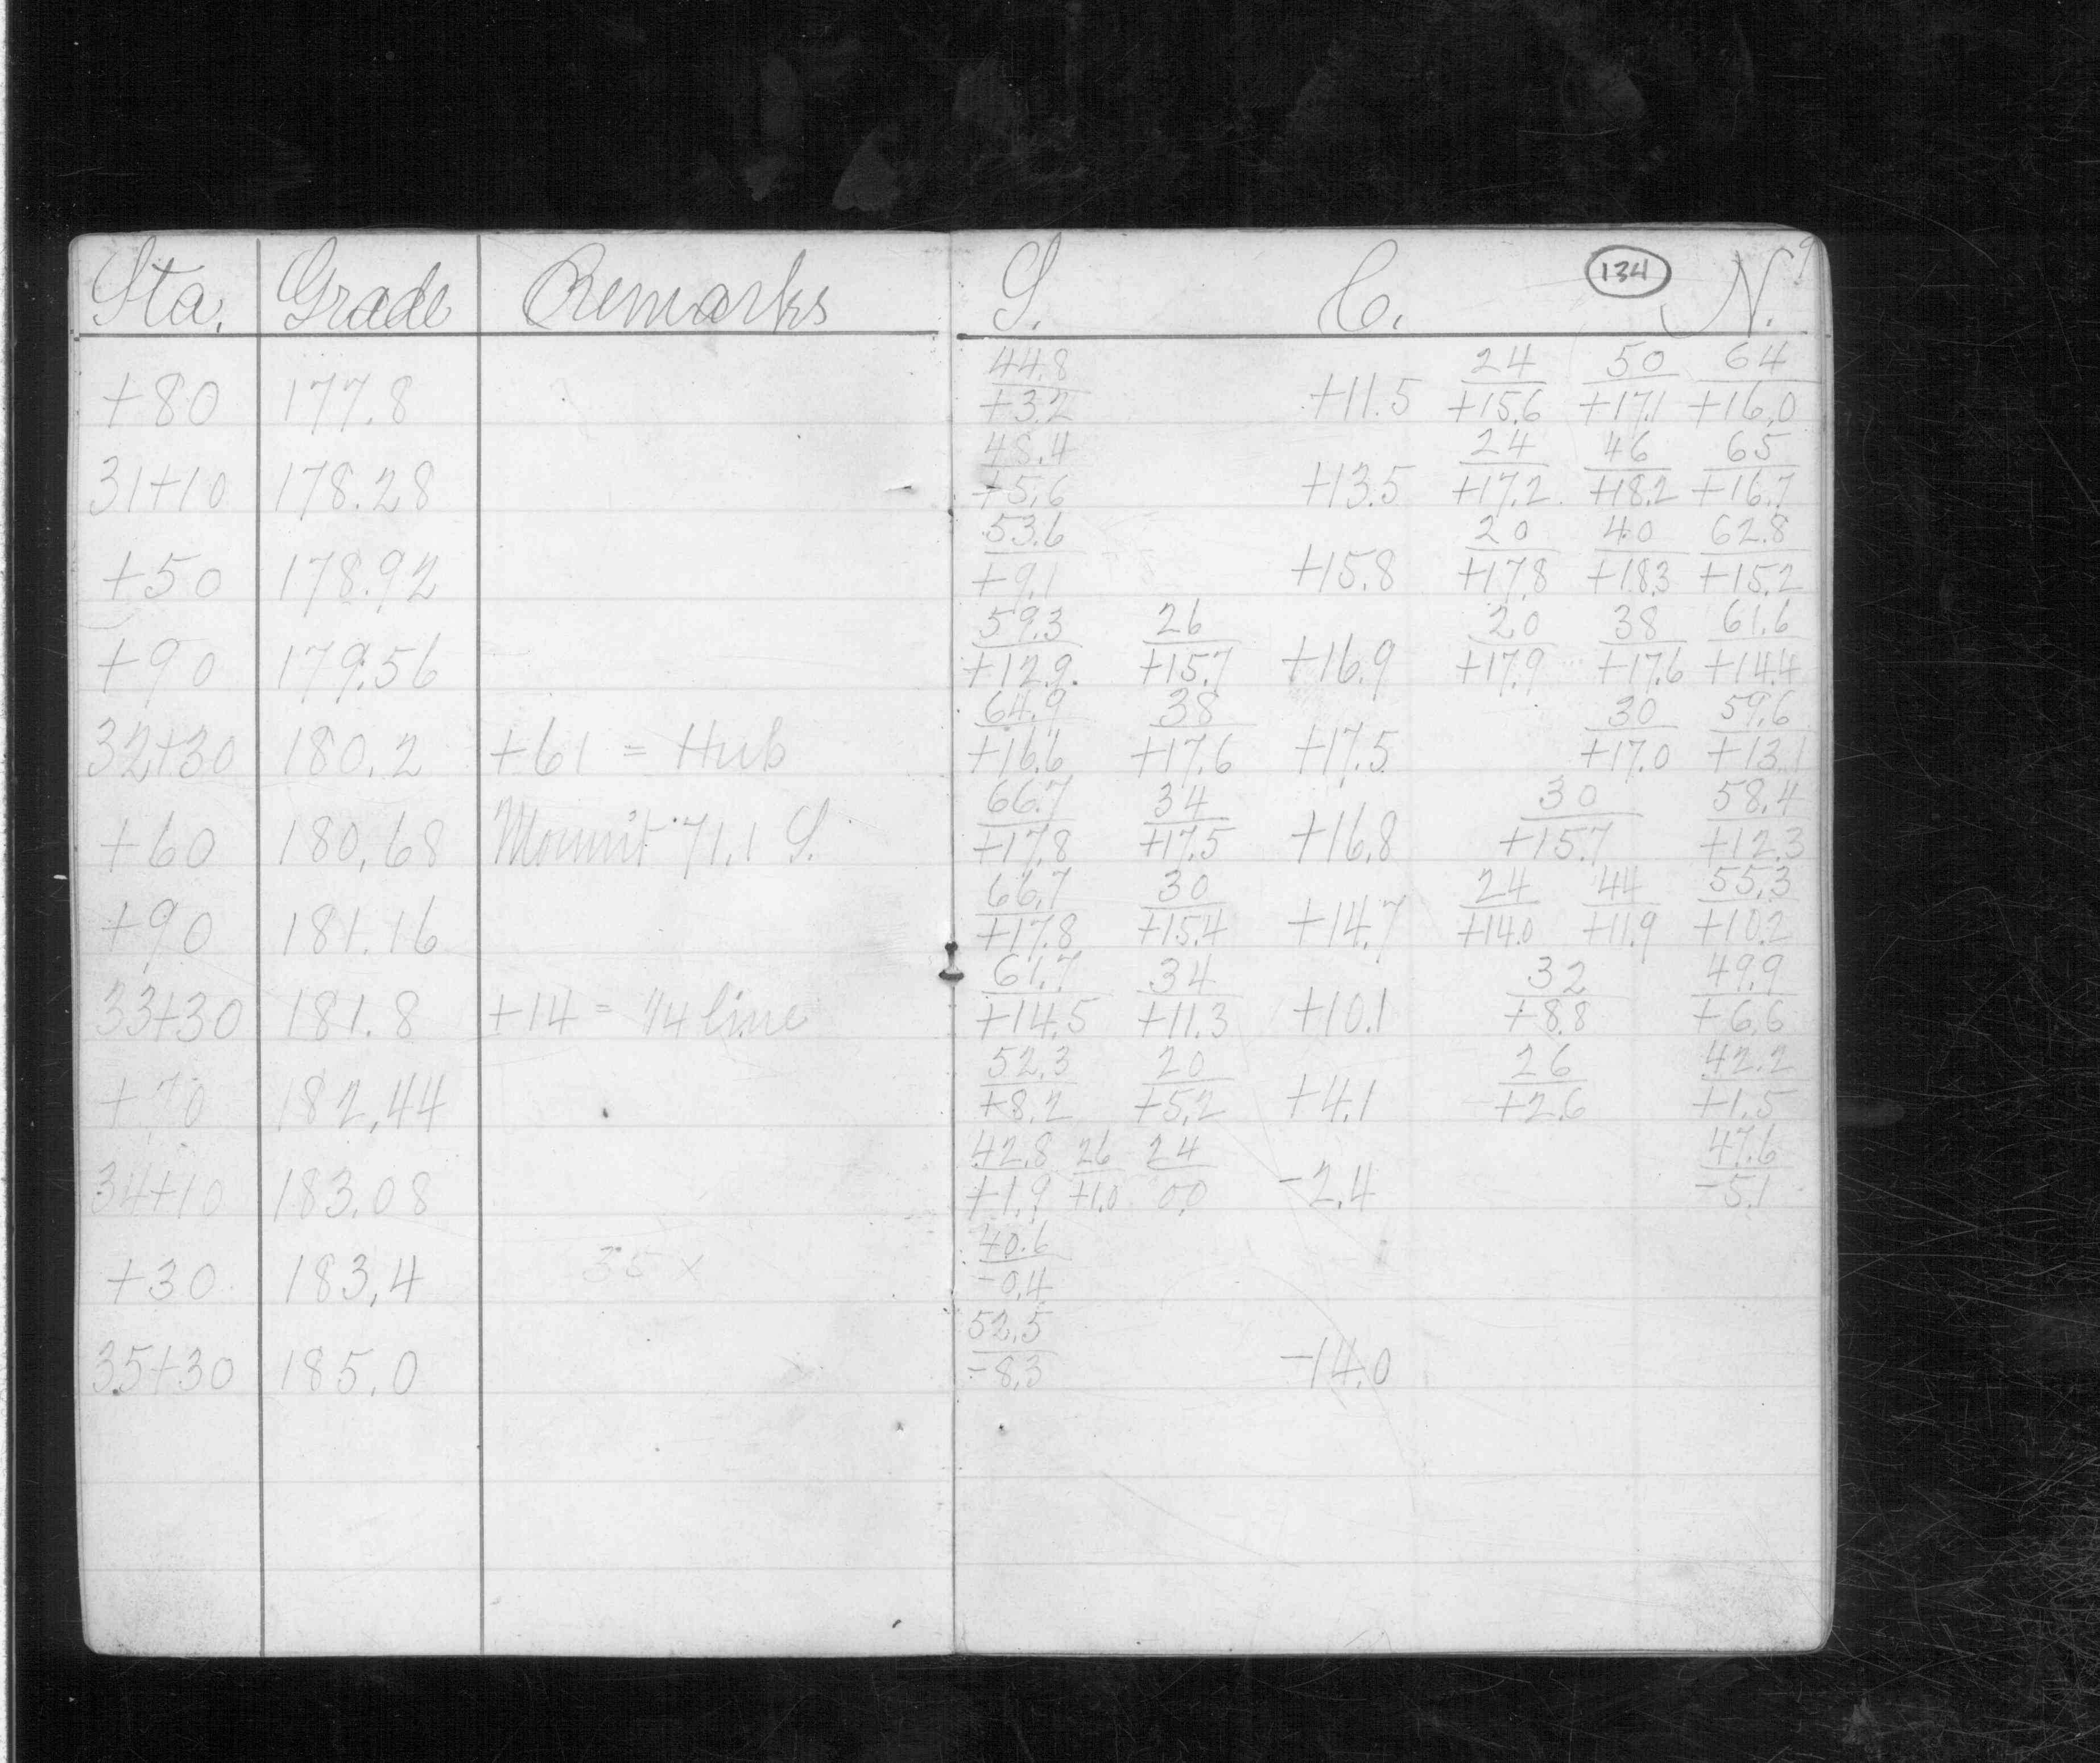 Sta. Grade Remarks S. C. 134 N. 9
44.8 24 50 64
+80 177.8 +3.2 +11.5 +15.6 +17.1 +16.0
48.4 24 46 65
31+10 178.28 +5.6 +13.5 +17.2 +18.2 +16.7
53.6 20 40 62.8
+50 178.92 +9.1 +15.8 +17.8 +18.3 +15.2
59.3 26 20 38 61.6
+90 179.56 +12.9 +15.7 +16.9 +17.9 +17.6 +14.4
64.9 38 30 59.6
32+30 180.2 +61 = Hub +16.6 +17.6 +17.5 +17.0 +13.1
66.7 34 30 58.4
+60 180.68 71.1 S. +17.8 +17.5 +16.8 +15.7 +12.3
66.7 30 24 44 55.3
+90 181.16 +17.8 +15.4 +14.7 +14.0 +11.9 +10.2
61.7 34 32 49.9
33+30 181.8 +14 = 1/4 line +14.5 +11.3 +10.1 +8.8 +6.6
52.3 20 26 42.2
+70 182.44 +8.2 +5.2 +4.1 +2.6 +1.5
42.8 26 24 47.6
34+10 183.08 +1.9 +1.0 0.0 -2.4 -5.1
40.6
+30 183.4 35 x -0.4
52.5
35+30 185.0 -8.3 -14.0